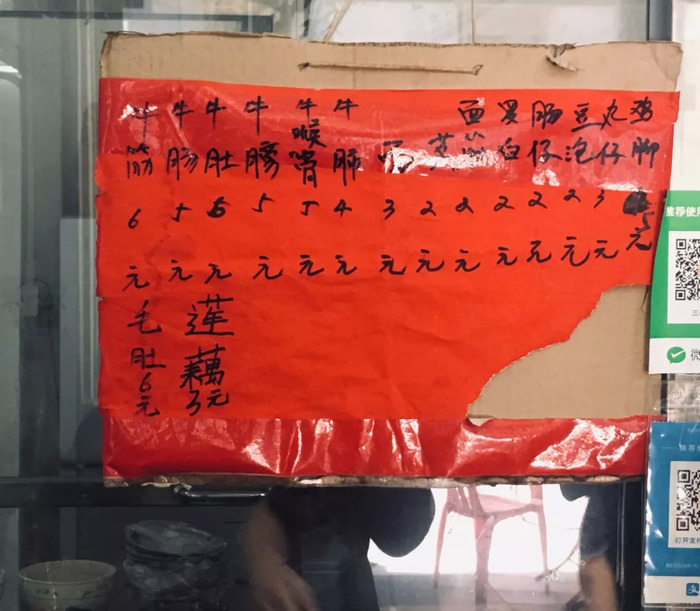 牛筋6元
牛肠5元
牛肚6元
牛 5元
牛喉骨5元
牛肺4元
3元
2元
面筋2元
白2元
肠仔2元
豆泡2元
丸仔3元
鸡脚5元
毛肚6元
莲藕3元
推荐使用
微
推荐使用
打开支付